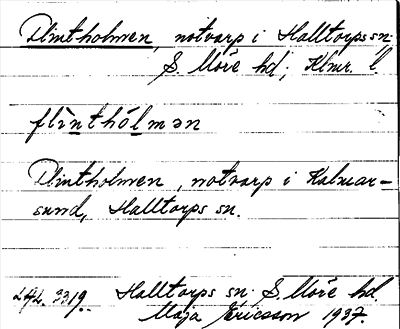 Flintholmen, notvarp i Halltorps sn;
S. Möre hd; Kalmar l.
flìnthólmən
Flintholmen, notvarp i Kalmar-
sund, Halltorps sn.
Halltorps sn. S. Möre hd
Maja Ericsson 1937.